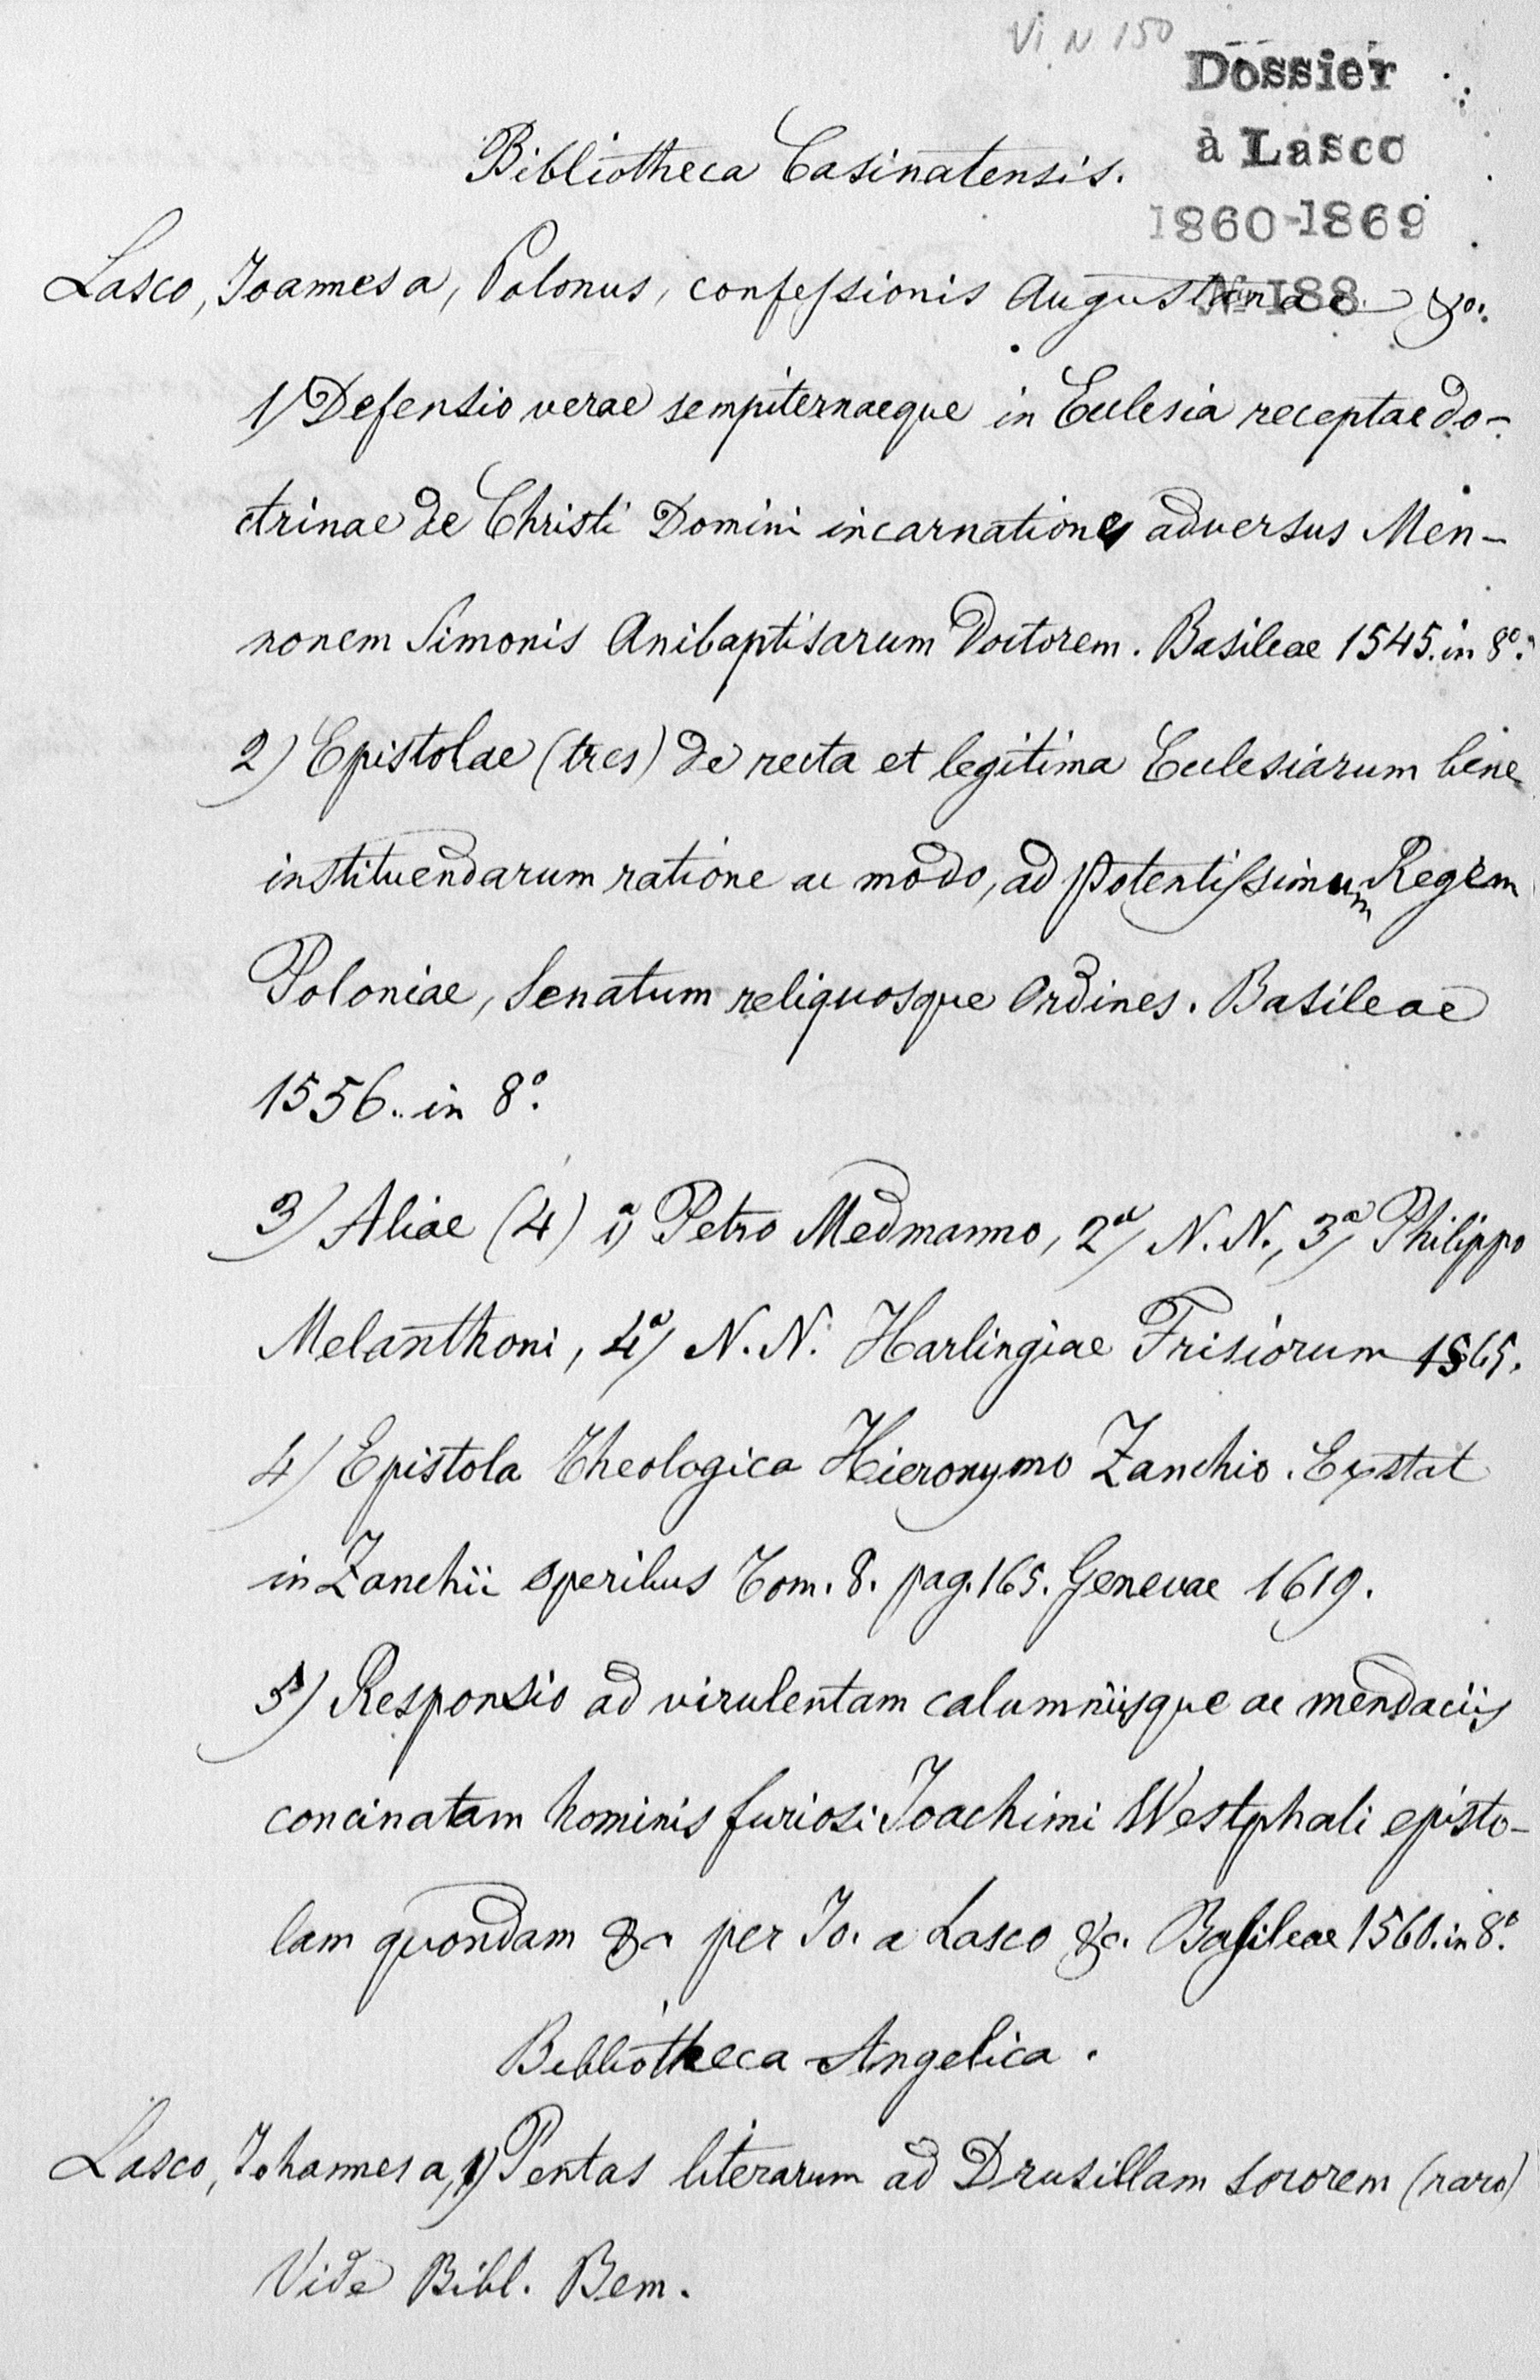 Vi. N. 150
Dossier
à Lasco
1860-1869
No 188
Bibliotheca Casinatensis.
Lasco, Joannes a, Polonus, confessionis Augustanae &c.
1) Defensio verae sempiternaeque in Ecclesia receptae do-
ctrinae de Christi Domini incarnatione adversus Men-
nonem Simonis Anibaptisarum Doctorem. Basileae 1545. in 8o.
2) Epistolae (tres) de recta et legitima Ecclesiarum bene
instituendarum ratione ac modo, ad Potentissimum Regem
Poloniae, Senatum reliquosque Ordines. Basileae
1556. in 8o.
3) Aliae (4) 1a) Petro Medmanno, 2a) N. N., 3a) Philippo
Melanthoni, 4a) N. N. Harlingiae Frisiorum 1565.
4) Epistola Theologica Hieronymo Zanchio. Exstat
in Zanchii operibus Tom. 8. pag. 165. Genevae 1619.
5) Responsio ad virulentam calumniisque ac mendaciis
concinatam hominis furiosi Joachimi Westphali episto-
lam quondam &c per Jo. a Lasco &c. Basileae 1560. in 8o.
Bibliotheca Angelica.
Lasco, Johannes a, 1) Pentas literarum ad Drusillam sororem (raro)
Vide Bibl. Bem.